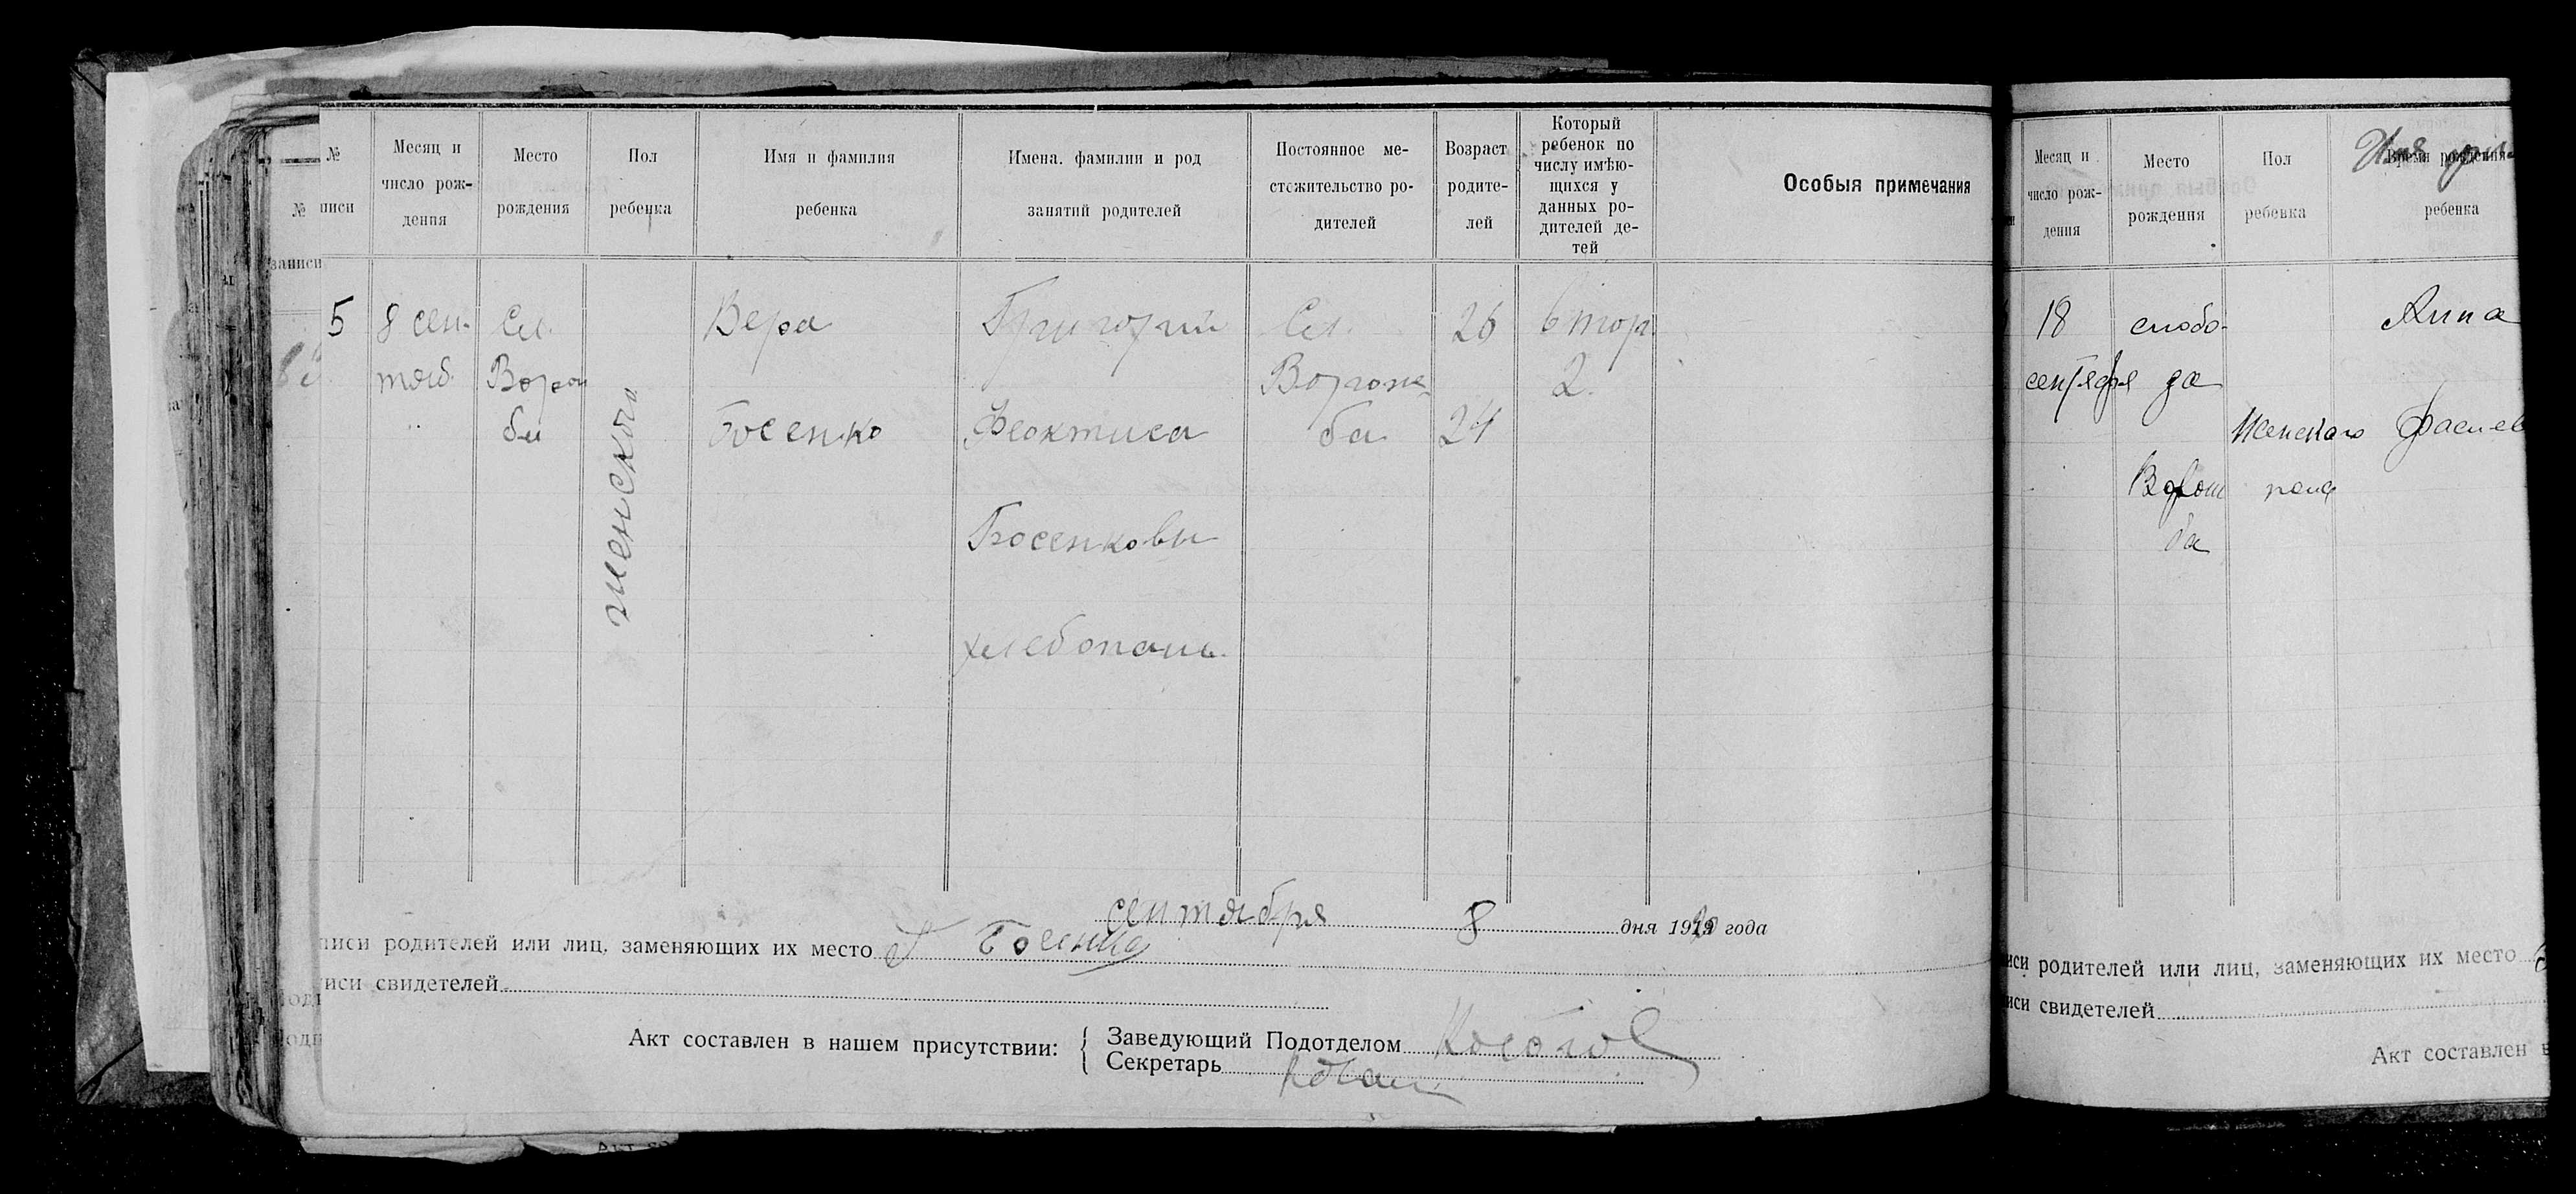 №
писи
Месяц и
число рож-
дения
Место
рождения
Пол
ребенка
Имя и фамилия
ребенка
Имена, фамилии и род
занятий родителей
Постоянное ме-
стожительство ро-
дителей
Возраст
родите-
лей
Который
ребенок по
числу имѣю-
щихся у
данных ро-
дителей де-
тей
Особыя примечания
№
записи
5
8 сен-
тяб.
Сл.
Ворон
бы
женского
Вера
Босенко
Григорий
Феоктиса
Босенковы
хлебопаш.
Сл.
Ворож
ба
26
24
втор.
2.
сентября 8 дня 1919 года
писи родителей или лиц, заменяющих их место Босенко
иси свидетелей
Акт составлен в нашем присутствии:
Заведующий Подотделом
Секретарь
Месяц и
число рож-
дения
Место
рождения
Пол
ребенка
Время рождения
ребенка
18
сентября
слобо-
да
Ворож
ба
Женского
пола
Анна
иси родителей или лиц, заменяющих их место
иси свидетелей
Акт составлен в